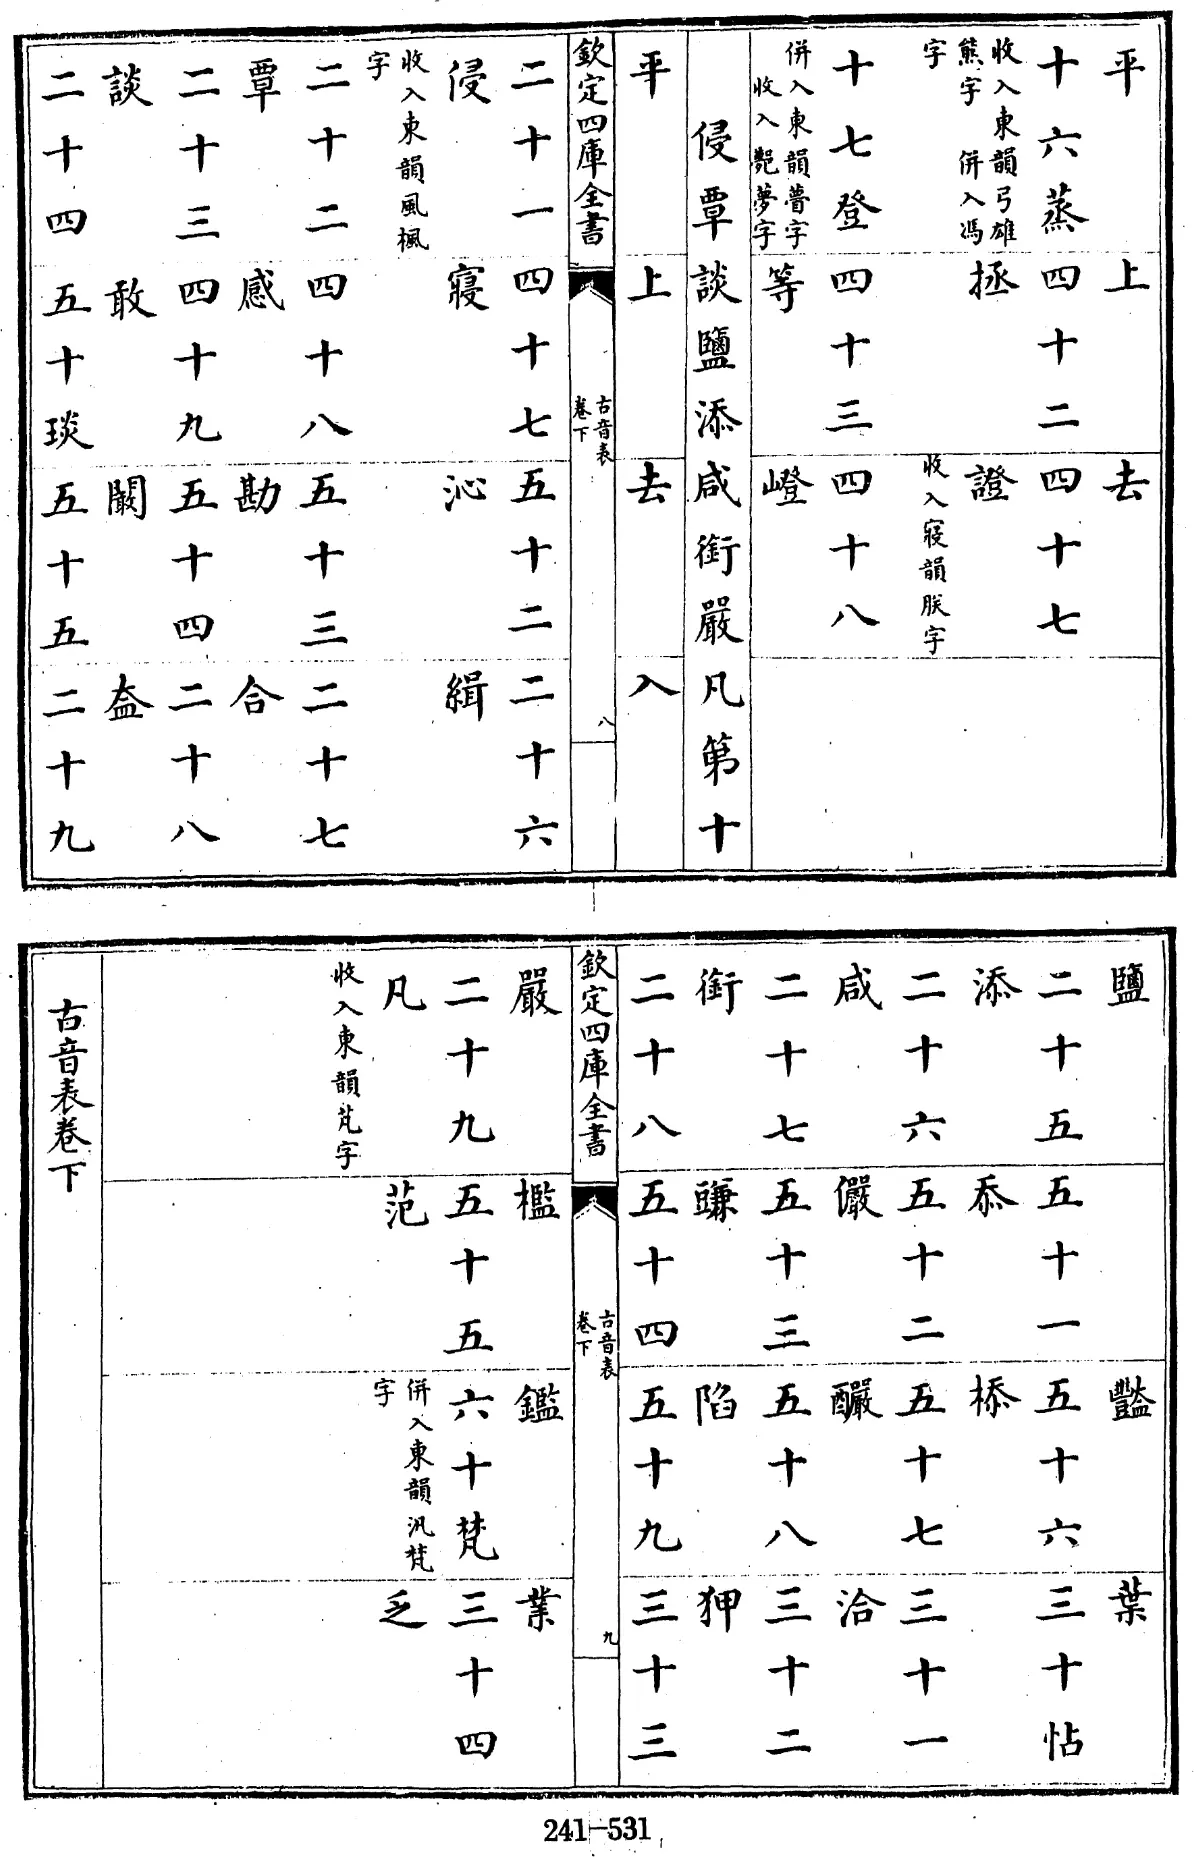 平 上 去
十六蒸 四十二 四十七
收入東韻弓雄 拯 證
熊字 併入馮
字 收入寑韻朕字
十七登 四十三 四十八
併入東韻瞢字 等 嶝
收入艷夢字
侵覃談鹽添咸銜嚴凡第十
平 上 去 入
欽定四庫全書 古音表 卷下 八
二十一 四十七 五十二 二十六
侵 寑 沁 緝
收入東韻風楓
字
二十二 四十八 五十三 二十七
覃 感 勘 合
二十三 四十九 五十四 二十八
談 敢 闞 盍
二十四 五十琰 五十五 二十九
鹽 豔 葉
二十五 五十一 五十六 三十帖
添 忝 㮇
二十六 五十二 五十七 三十一
咸 儼 釅 洽
二十七 五十三 五十八 三十二
銜 豏 陷 狎
二十八 五十四 五十九 三十三
欽定四庫全書 古音表 卷下 九
嚴 檻 鑑 業
二十九 五十五 六十梵 三十四
凡 范 併入東韻汎梵 乏
字
收入東韻芃字
古音表卷下
241-531